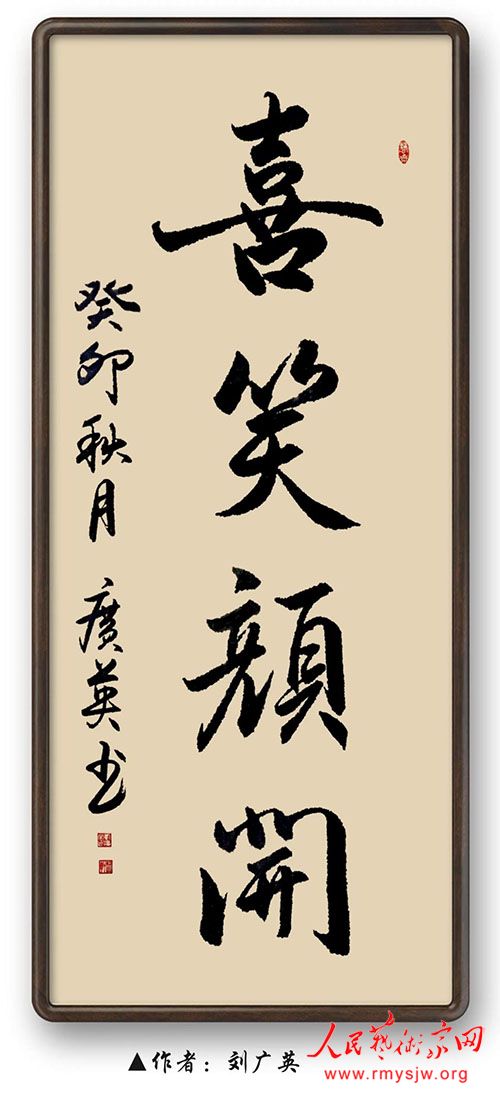 喜笑顔開
癸卯秋月 廣英书
▲作者：刘广英
人民藝術家网
www.rmysjw.org